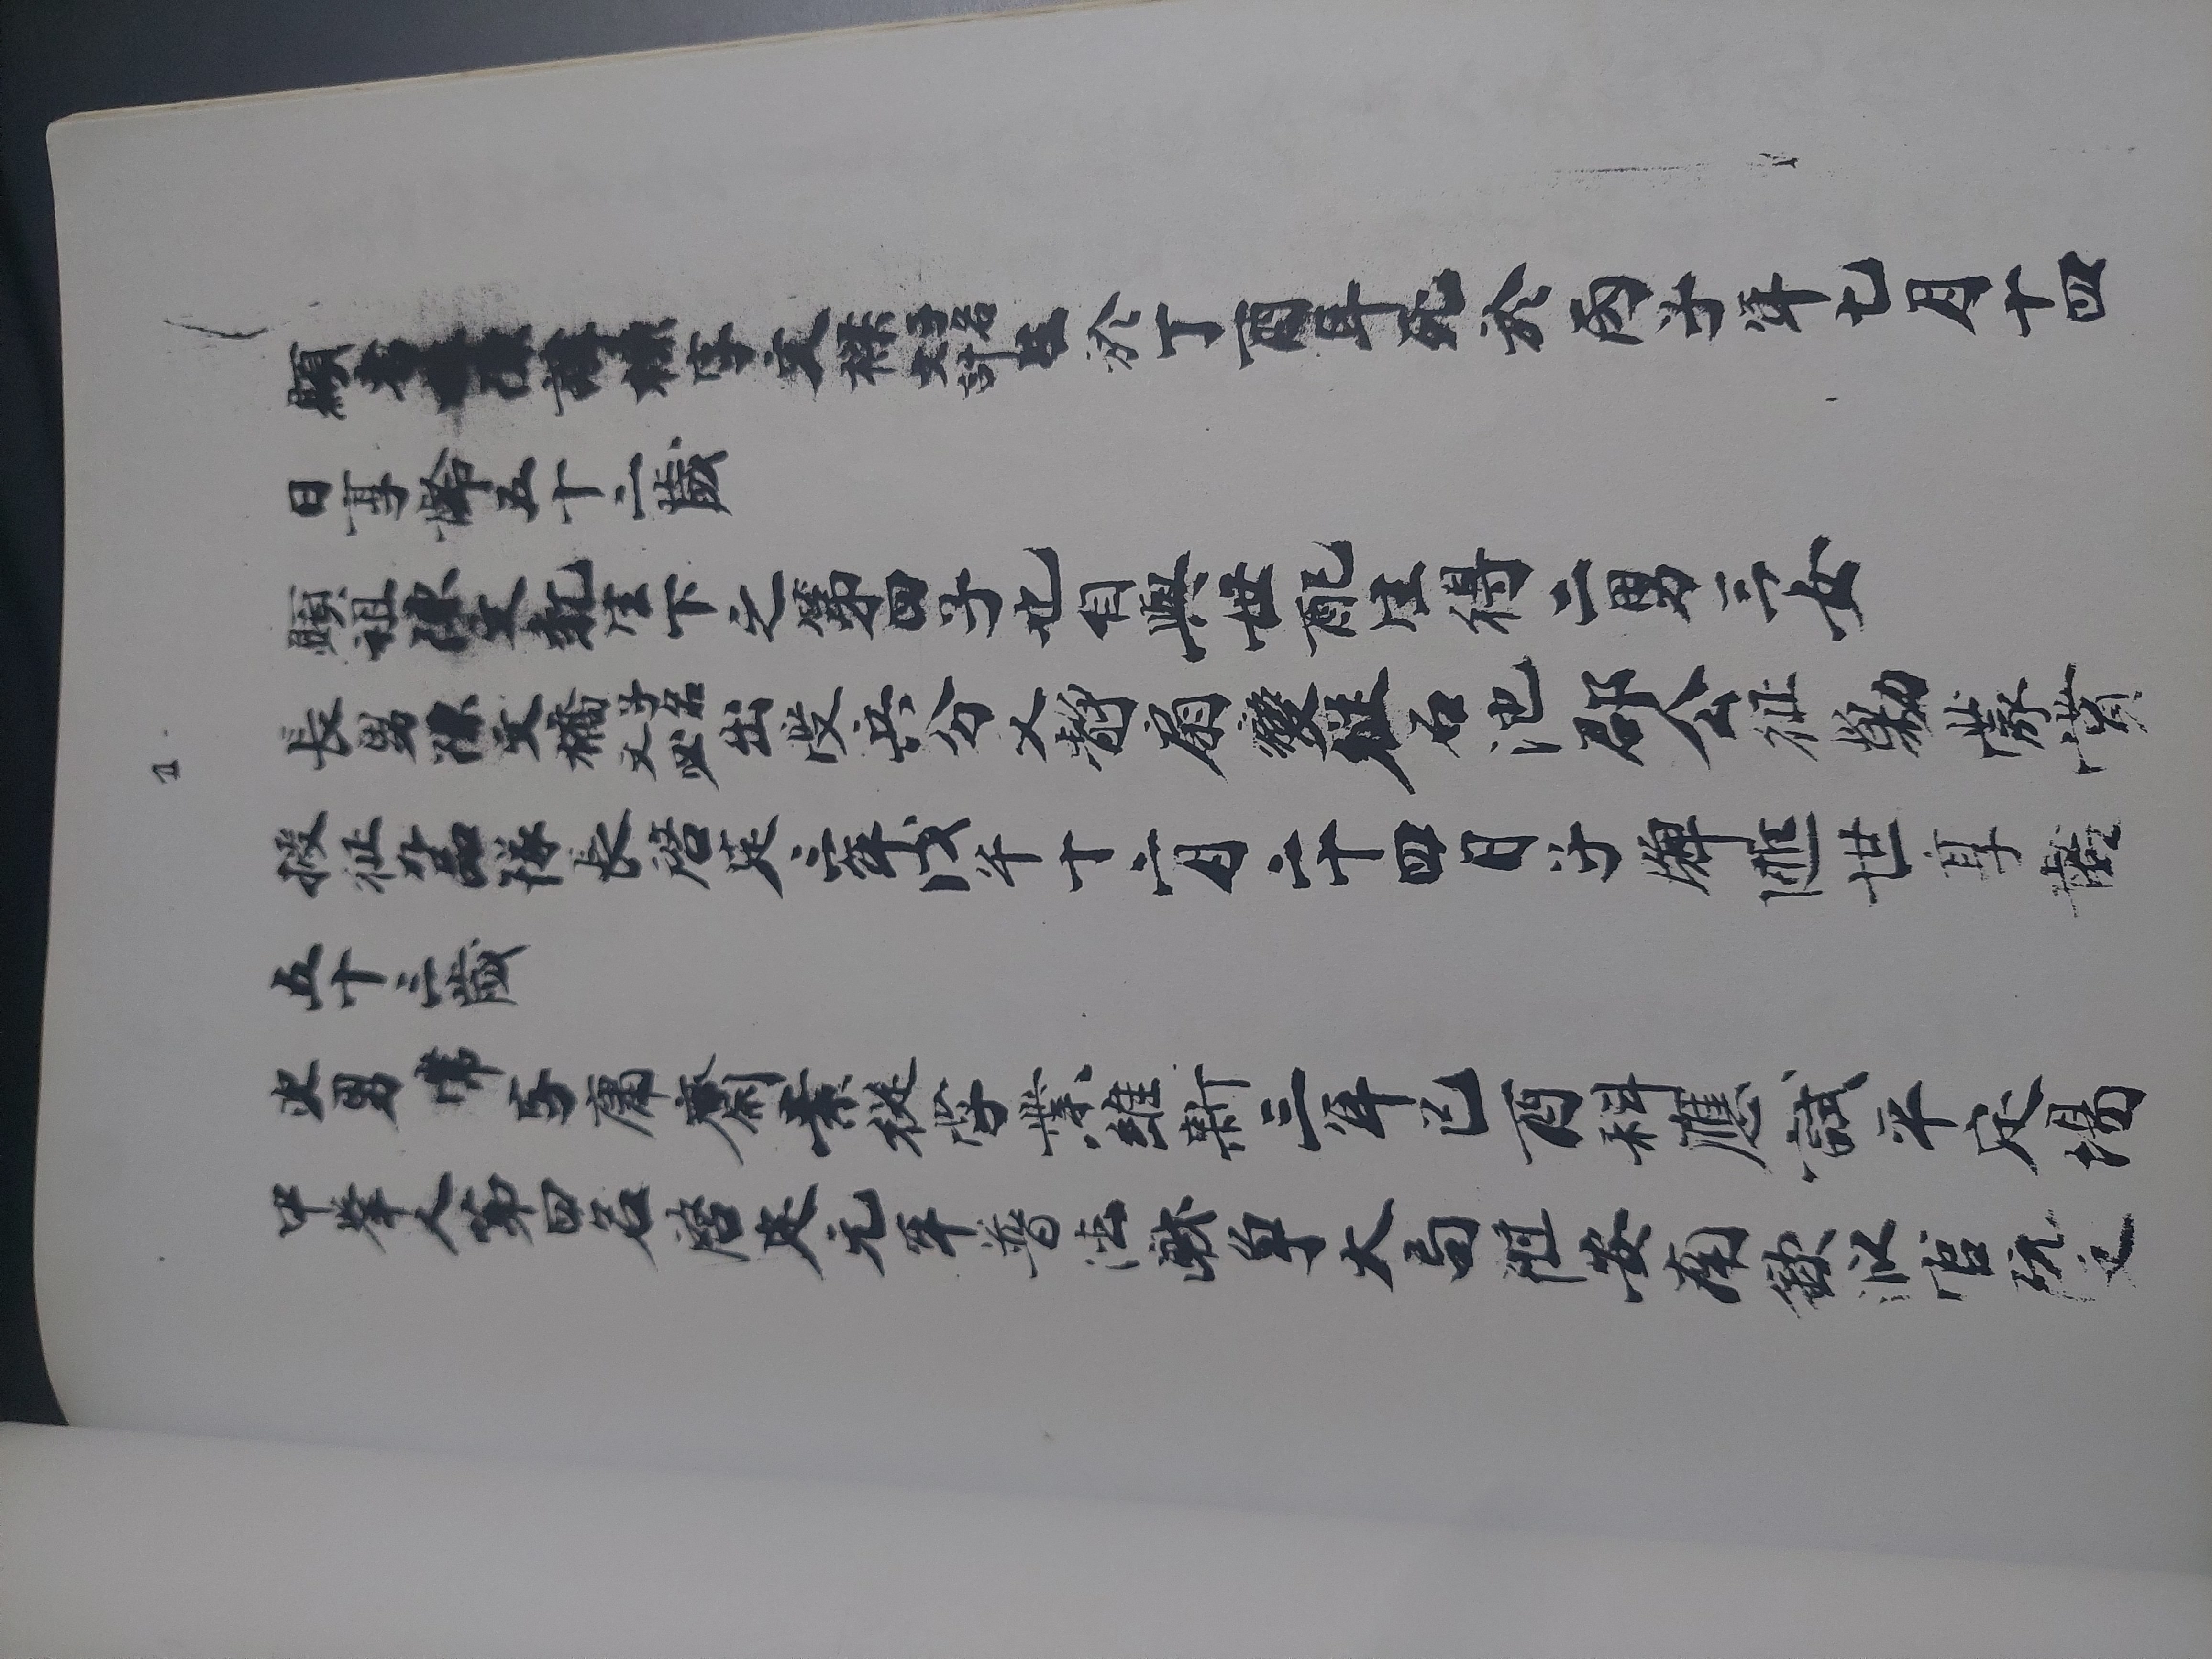 1.
顯考陳諱椂字文祿子名文計生於丁酉年死於丙子年七月十四
日享齡五十二歲
顯祖陳文乾生下之第四子也自與世配生得二男三女
長男陳文橋子名文四出受兵分乂靜扇變征石池郡公征勦蒙賞
授征九品隊長啓定三年戊午十二月二十四日子牌逝世享齡
五十三歲
次男常写庸齋業從学業維新三年己酉科應試平定場
中举人第四名啓定元年普法戰争大局阻安南欽派官阮文